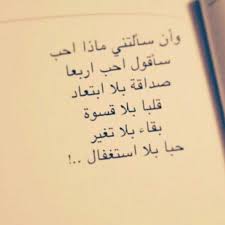 وأن سألتني ماذا احب
سأقول احب اربعا
صداقة بلا ابتعاد
قلبا بلا قسوة
بقاء بلا تغير
حبا بلا استغفال ..!